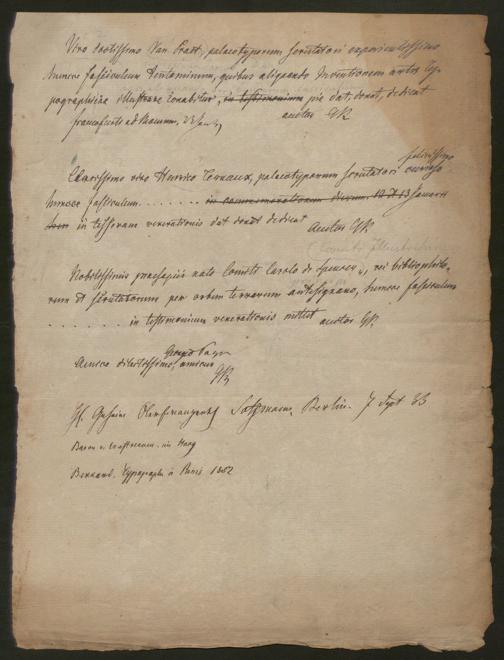 Viro doctissimo Van Praet, palaeotyporum scrutatori
huncce fasciculum tentaminum, quibus aliquando Inventionem artis ty-
pographicae illustrare conabitur, in testimonium pie dat, donat, dedicat
Francofurti ad Moenum, auctor GK
felicissimo
Clarissimo viro Henrico Ternaux, palaeotyporum scrutatori curioso
huncce fasciculum . . . . . . . . in commemorationem dierum 12 et 13 Januarii
in tesseram venerationis dat donat dedicat
auctor GK
Nobilissimis prosapiis nato Comiti Carolo de Spencer, rei bibliophilo-
rum et scrutatorum per orbem terrarum antesignano, huncce fasciculum
. . . . . . . . in testimonium venerationis mittit auctor GK
Amico dilectissimo amicus
GK
H. Geheim Berlin. 7 Sept 33
Baron v. im Haag
Bernard, Typographe à Paris 1802